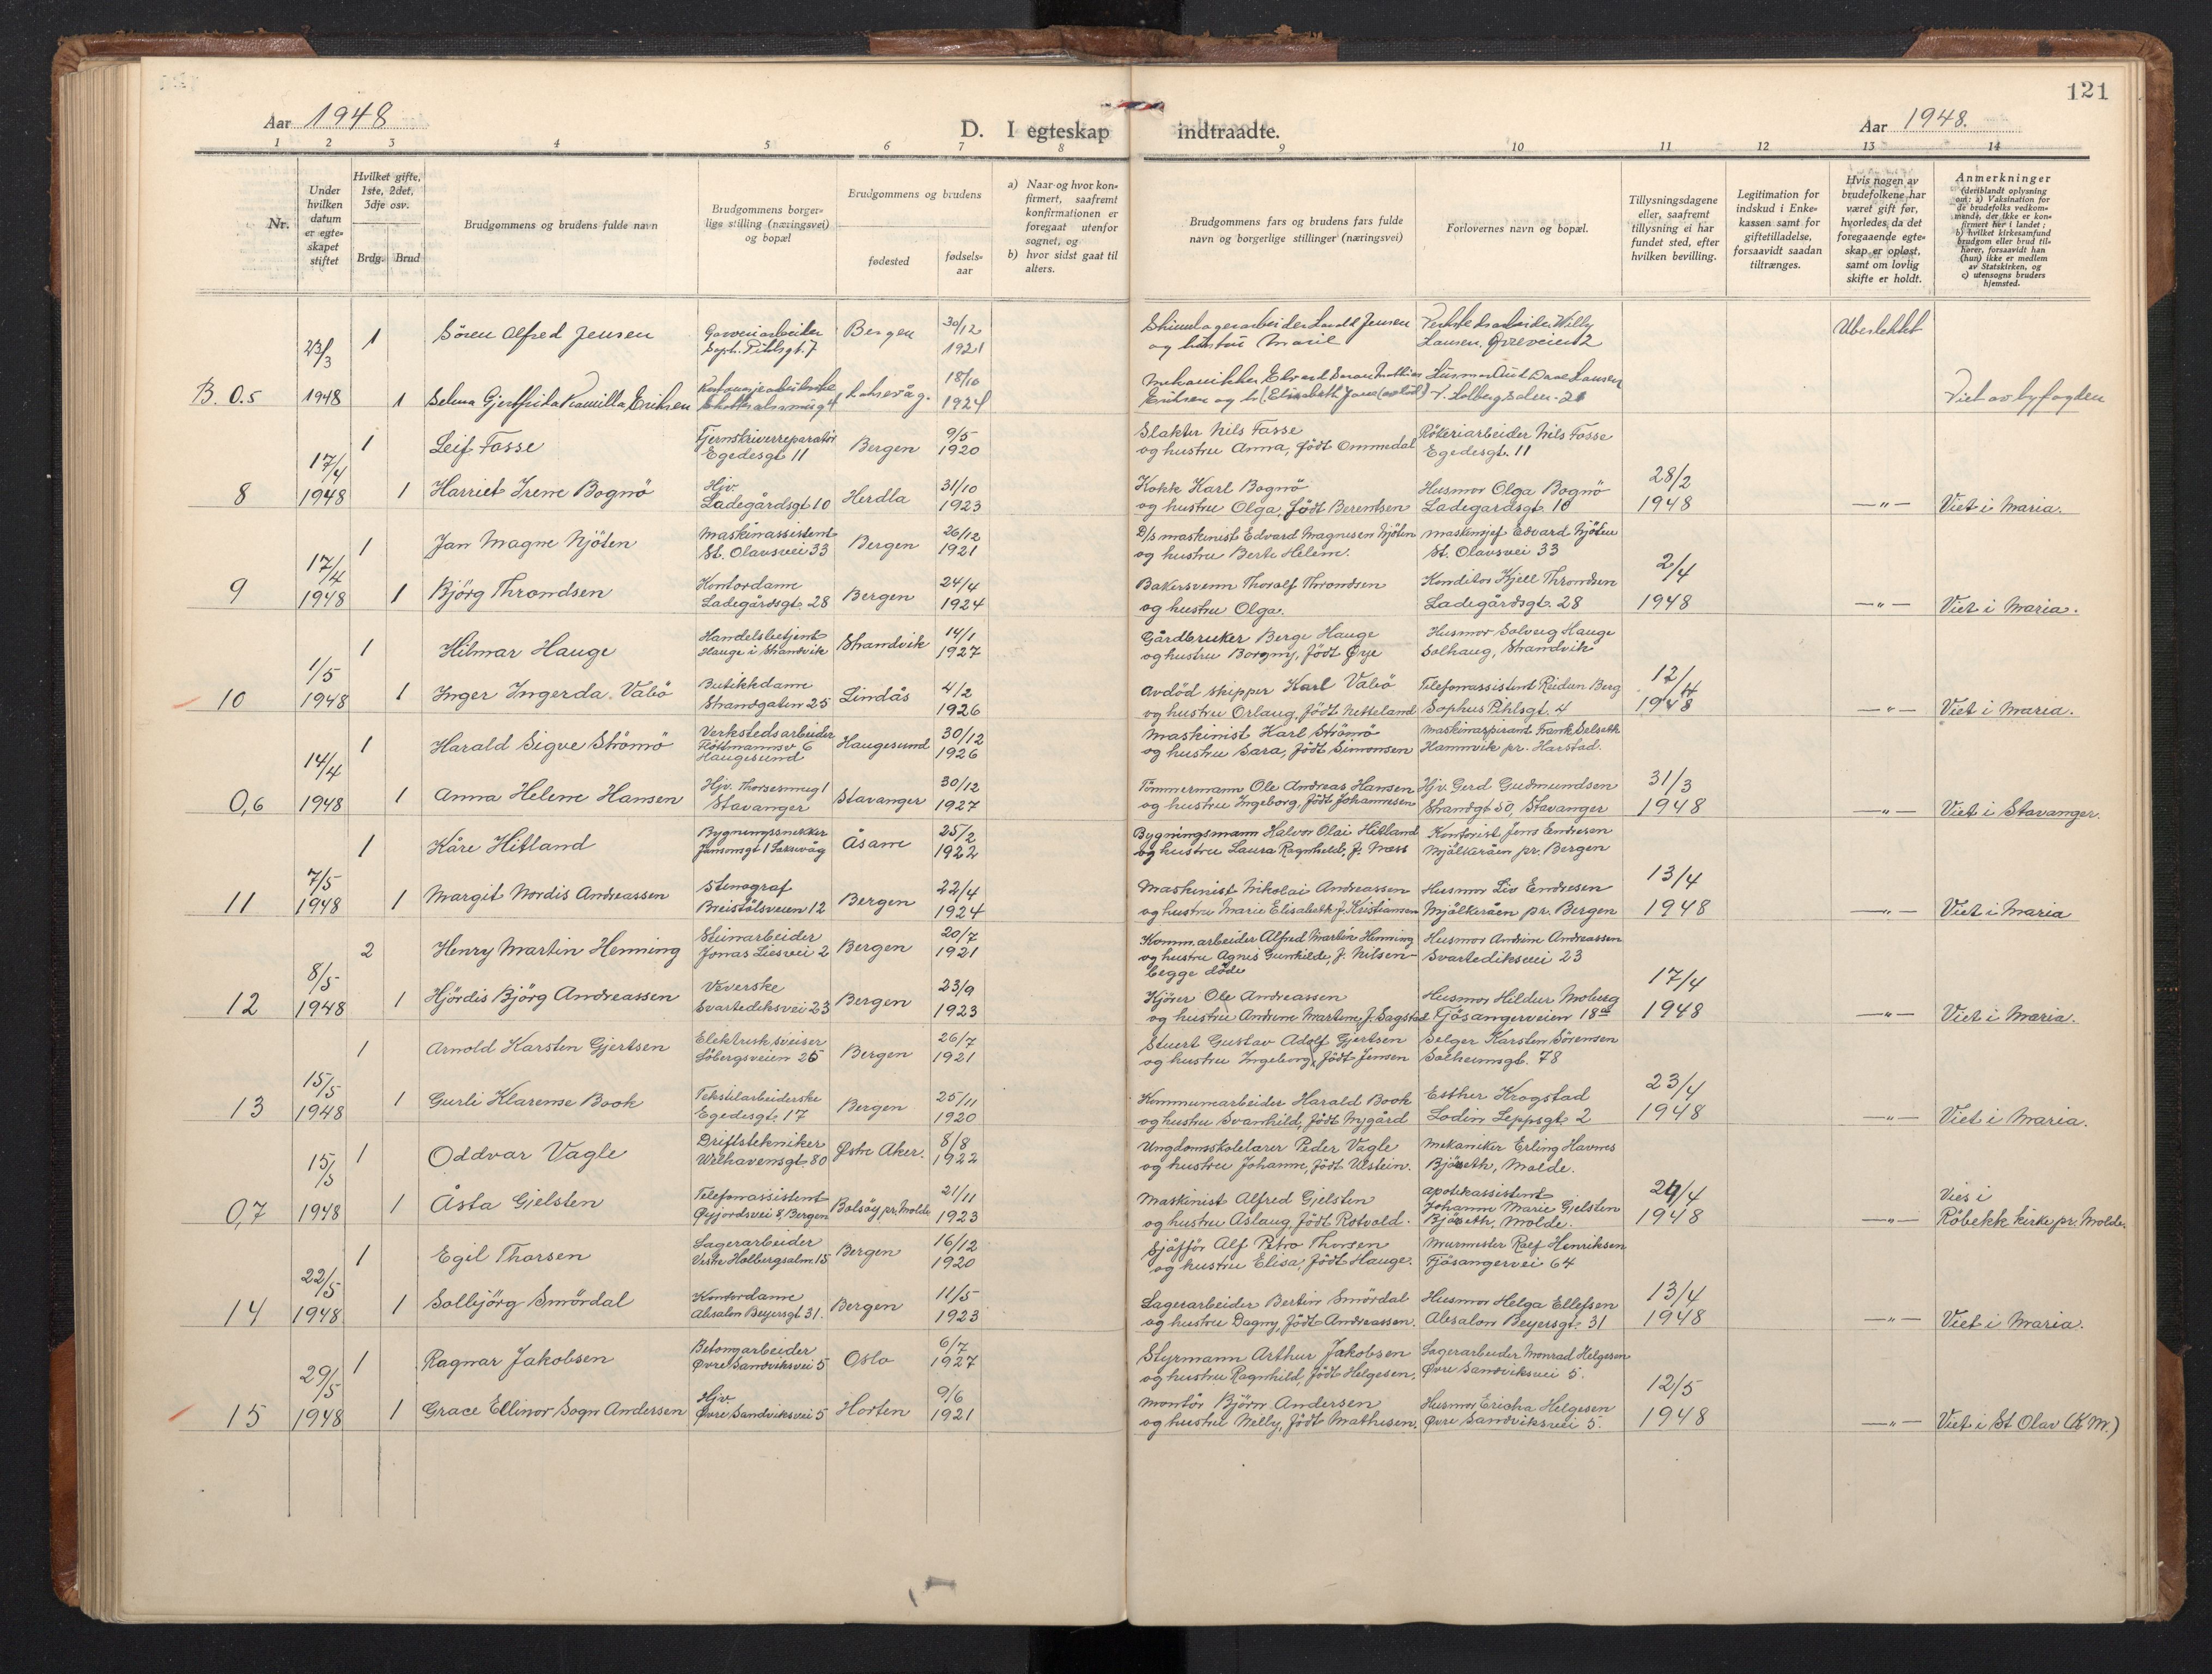 121
Aar 1948
D. I egteskap indtraadte.
Aar 1948.
1 2 3 4 5 6 7 8 9 10 11 12 13 14
Nr.
Under hvilken datum er egte-skapet stiftet
Hvilket gifte, 1ste, 2det, 3dje osv.
Brdg. Brud
Brudgommens og brudens fulde navn
Brudgommens borger-lige stilling (næringsvei) og bopæl
Brudgommens og brudens
fødested
fødsels-aar
a) Naar og hvor kon-firmert, saafremt konfirmationen er foregaat utenfor sognet, og
b) hvor sidst gaat til alters.
Brudgommens fars og brudens fars fulde navn og borgerlige stillinger (næringsvei)
Forlovernes navn og bopæl.
Tillysningsdagene eller, saafremt tillysning ei har fundet sted, efter hvilken bevilling.
Legitimation for indskud i Enke-kassen samt for giftetilladelse, forsaavidt saadan tiltrænges.
Hvis nogen av brudefolkene har været gift før, hvorledes da det foregaaende egte-skap er opløst, samt om lovlig skifte er holdt.
Anmerkninger
(deriblandt oplysning om: a) Vaksination for de brudefolks vedkom-mende, der ikke er kon-firmert her i landet; b) hvilket kirkesamfund brudgom eller brud til-hører, forsaavidt han (hun) ikke er medlem av Statskirken, og c) utensogns bruders hjemsted.
23/3 1 Sören Alfred Jensen Garveriarbeider Bergen 30/12 og hustru Marie Willy Ubeslektet
Soph. Pihlsgt. 7 1921 Larsen. Øvreveien 2
B. O.5 1948 1 Selma Gjertfrida Kamilla Eriksen Laksevåg. 18/10 1924 Eriksen og h. (Elisabeth Viet av byfogden
1 Leif Fosse Fjernskriverreparatör Bergen 9/5 Slakter Nils Fosse Rökeriarbeider Nils Fosse
17/4 Egedesgt 11 1920 og hustru Anna, födt Ommedal Egedesgt. 11
8 1948 1 Harriet Irene Bognö Hjv. Herdla 31/10 Kokk Karl Bognö Husmor Olga Bognö 28/2
Ladegårdsgt 10 1923 og hustru Olga, födt Berentsen Ladegardsgt. 10 1948 —"— Viet i Maria.
1 Jan Magne Njöten Maskinassistent Bergen 26/12 D/s maskinist Edvard Magnusen Njöten Maskinsjef Edvard Njöten
17/4 St. Olavsvei 33 1921 og hustru Berte Helene. St. Olavsvei 33
9 1948 1 Björg Throndsen Kontordame Bergen 24/4 Bakersvenn Thoralf Throndsen Konditor Kjell Throndsen 2/4
Ladegårdsgt. 28 1924 og hustru Olga. Ladegårdsgt. 28 1948 —"— Viet i Maria.
1 Hilmar Hauge Handelsbetjent Strandvik 14/1 Gårdbruker Berge Hauge Husmor Solveig Hauge
1/5 Hauge i Strandvik 1927 og hustru Borgny, födt Øye Solhaug, Strandvik
10 1948 1 Inger Ingerda Valö Butikkdame Lindås 4/2 Avdöd skipper Karl Valö Telefonassistent Reidun Berg 12/4
Strandgaten 25 1926 og hustru Orlaug, födt Netteland Sophus Pihlsgt. 4 1948 —"— Viet i Maria.
1 Harald Sigve Strömö Verkstedsarbeider Haugesund 30/12 Maskinist Karl Strömö Maskinaspirant Frank Selseth
14/4 Haugesund 1926 og hustru Sara, födt Simonsen Hamnvik pr. Harstad.
0,6 1948 1 Anna Helene Hansen Hjv. Stavanger 30/12 Tömmermann Ole Andreas Hansen Hjv. Gerd Gudmundsen 31/3
Stavanger 1927 og hustru Ingeborg, födt Johannesen Strandgt 50, Stavanger 1948 —"— Viet i Stavanger.
1 Kåre Hitland Bygningssnekker Åsane 25/2 Bygningsmann Halvor Olai Hitland Kontorist Jens Endresen
7/5 Jansonsgt 1 Laksevåg 1922 og hustru Laura Ragnhild, f. Næss Mjölkeråen pr. Bergen
11 1948 1 Margit Nordis Andreassen Stenograf Bergen 22/4 Maskinist Nikolai Andreassen Husmor Liv Endresen 13/4
Breistölsveien 12 1924 og hustru Marie Elisabeth f. Kristiansen Mjölkeråen pr. Bergen 1948 —"— Viet i Maria
2 Henry Martin Henning Steinarbeider Bergen 20/7 Komm.arbeider Alfred Martin Henning Husmor Andrine Andreassen
8/5 Jonas Liesvei 2 1921 og hustru Agnes Gunhilde, f. Nilsen Svartediksvei 23
begge döde
12 1948 1 Hjördis Björg Andreassen Veverske Bergen 23/9 Kjörer Ole Andreassen Husmor Hildur Moberg 17/4
Svartediksvei 23 1923 og hustru Andrine Martine, f. Sagstad Fjösangerveien 18a 1948 —"— Viet i Maria.
1 Arnold Karsten Gjertsen Elektrisk sveiser Bergen 26/7 Stuert Gustav Adolf Gjertsen Selger Karsten Sörensen
15/5 Söbergsveien 25 1921 og hustru Ingeborg, födt Jensen Solheimsgt. 78
13 1948 1 Gurli Klarense Book Tekstilarbeiderske Bergen 25/11 Kommunearbeider Harald Book Esther Krogstad 23/4
Egedesgt. 17 1920 og hustru Svanhild, födt Nygård Lodin Leppsgt 2 1948 —"— Viet i Maria.
1 Oddvar Vagle Driftstekniker Østre Aker. 8/8 Ungdomsskolelærer Peder Vagle Mekaniker Erling Havnes
15/5 Welhavensgt 80 1922 og hustru Johanne, födt Ulstein. Bjöseth, Molde.
0,7 1948 1 Åsta Gjelsten Telefonassistent Bolsöy pr. Molde 21/11 Maskinist Alfred Gjelsten Apotekassistent Johanne Marie Gjelsten 24/4 Vies i
Øyjordsvei 8, Bergen 1923 og hustru Aslaug, födt Rotvold. Bjöseth, Molde. 1948 —"— Röbekk kirke pr. Molde.
1 Egil Thorsen Lagerarbeider Bergen 16/12 Sjåfför Alf Petro Thorsen Murmester Ralf Henriksen
22/5 Vestre Holbergsalm. 15 1920 og hustru Elisa, födt Hauge. Fjösangervei 64
14 1948 1 Solbjörg Smördal Kontordame Bergen 11/5 Lagerarbeider Bertin Smördal Husmor Helga Ellefsen 13/4
Absalon Beyersgt 31. 1923 og hustru Dagny, födt Andreassen. Absalon Beyersgt. 31 1948 —"— Viet i Maria.
1 Ragnar Jakobsen Betongarbeider Oslo 6/7 Styrmann Arthur Jakobsen Lagerarbeider Monrad Helgesen
29/5 Øvre Sandviksvei 5 1927 og hustru Ragnhild, födt Helgesen. Øvre Sandviksvei 5.
15 1948 1 Grace Ellinor Sogn Andersen Hjv. Horten 9/6 Montör Björn Andersen Husmor Ericha Helgesen 12/5
Øvre Sandviksvei 5 1921 og hustru Nelly, födt Mathisen. Øvre Sandviksvei 5. 1948 —"— Viet i St Olav (K.M.)